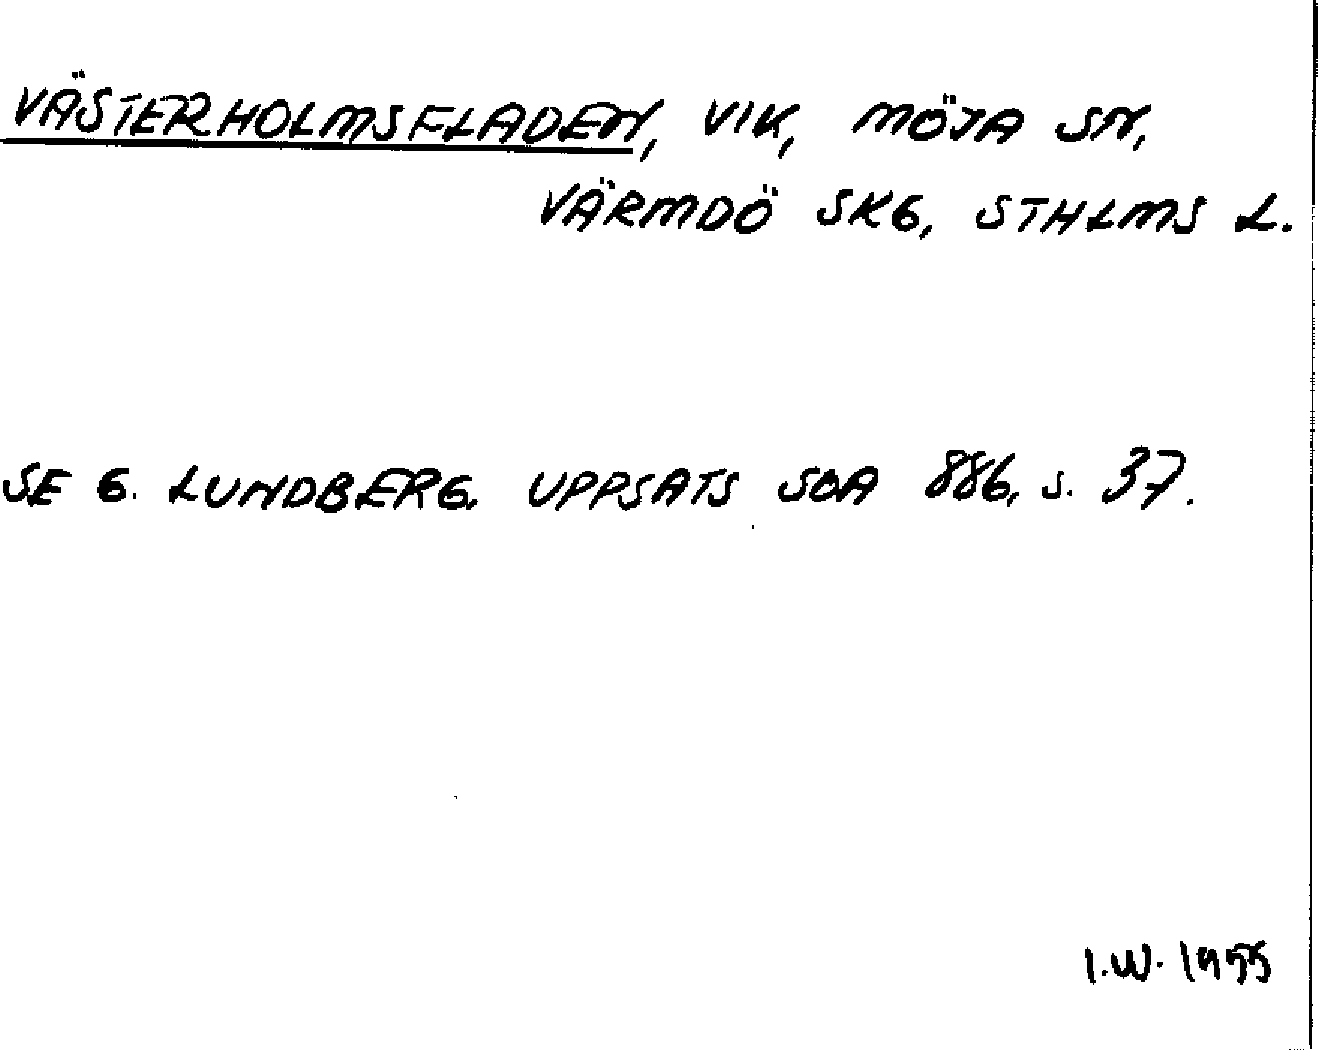 VÄSTERHOLMSFLADEN, VIK, MÖJA SN,
VÄRMDÖ SKG, STHLMS L.
SE G. LUNDBERG. UPPSATS SOA 886, s. 37.
I.W. 1955